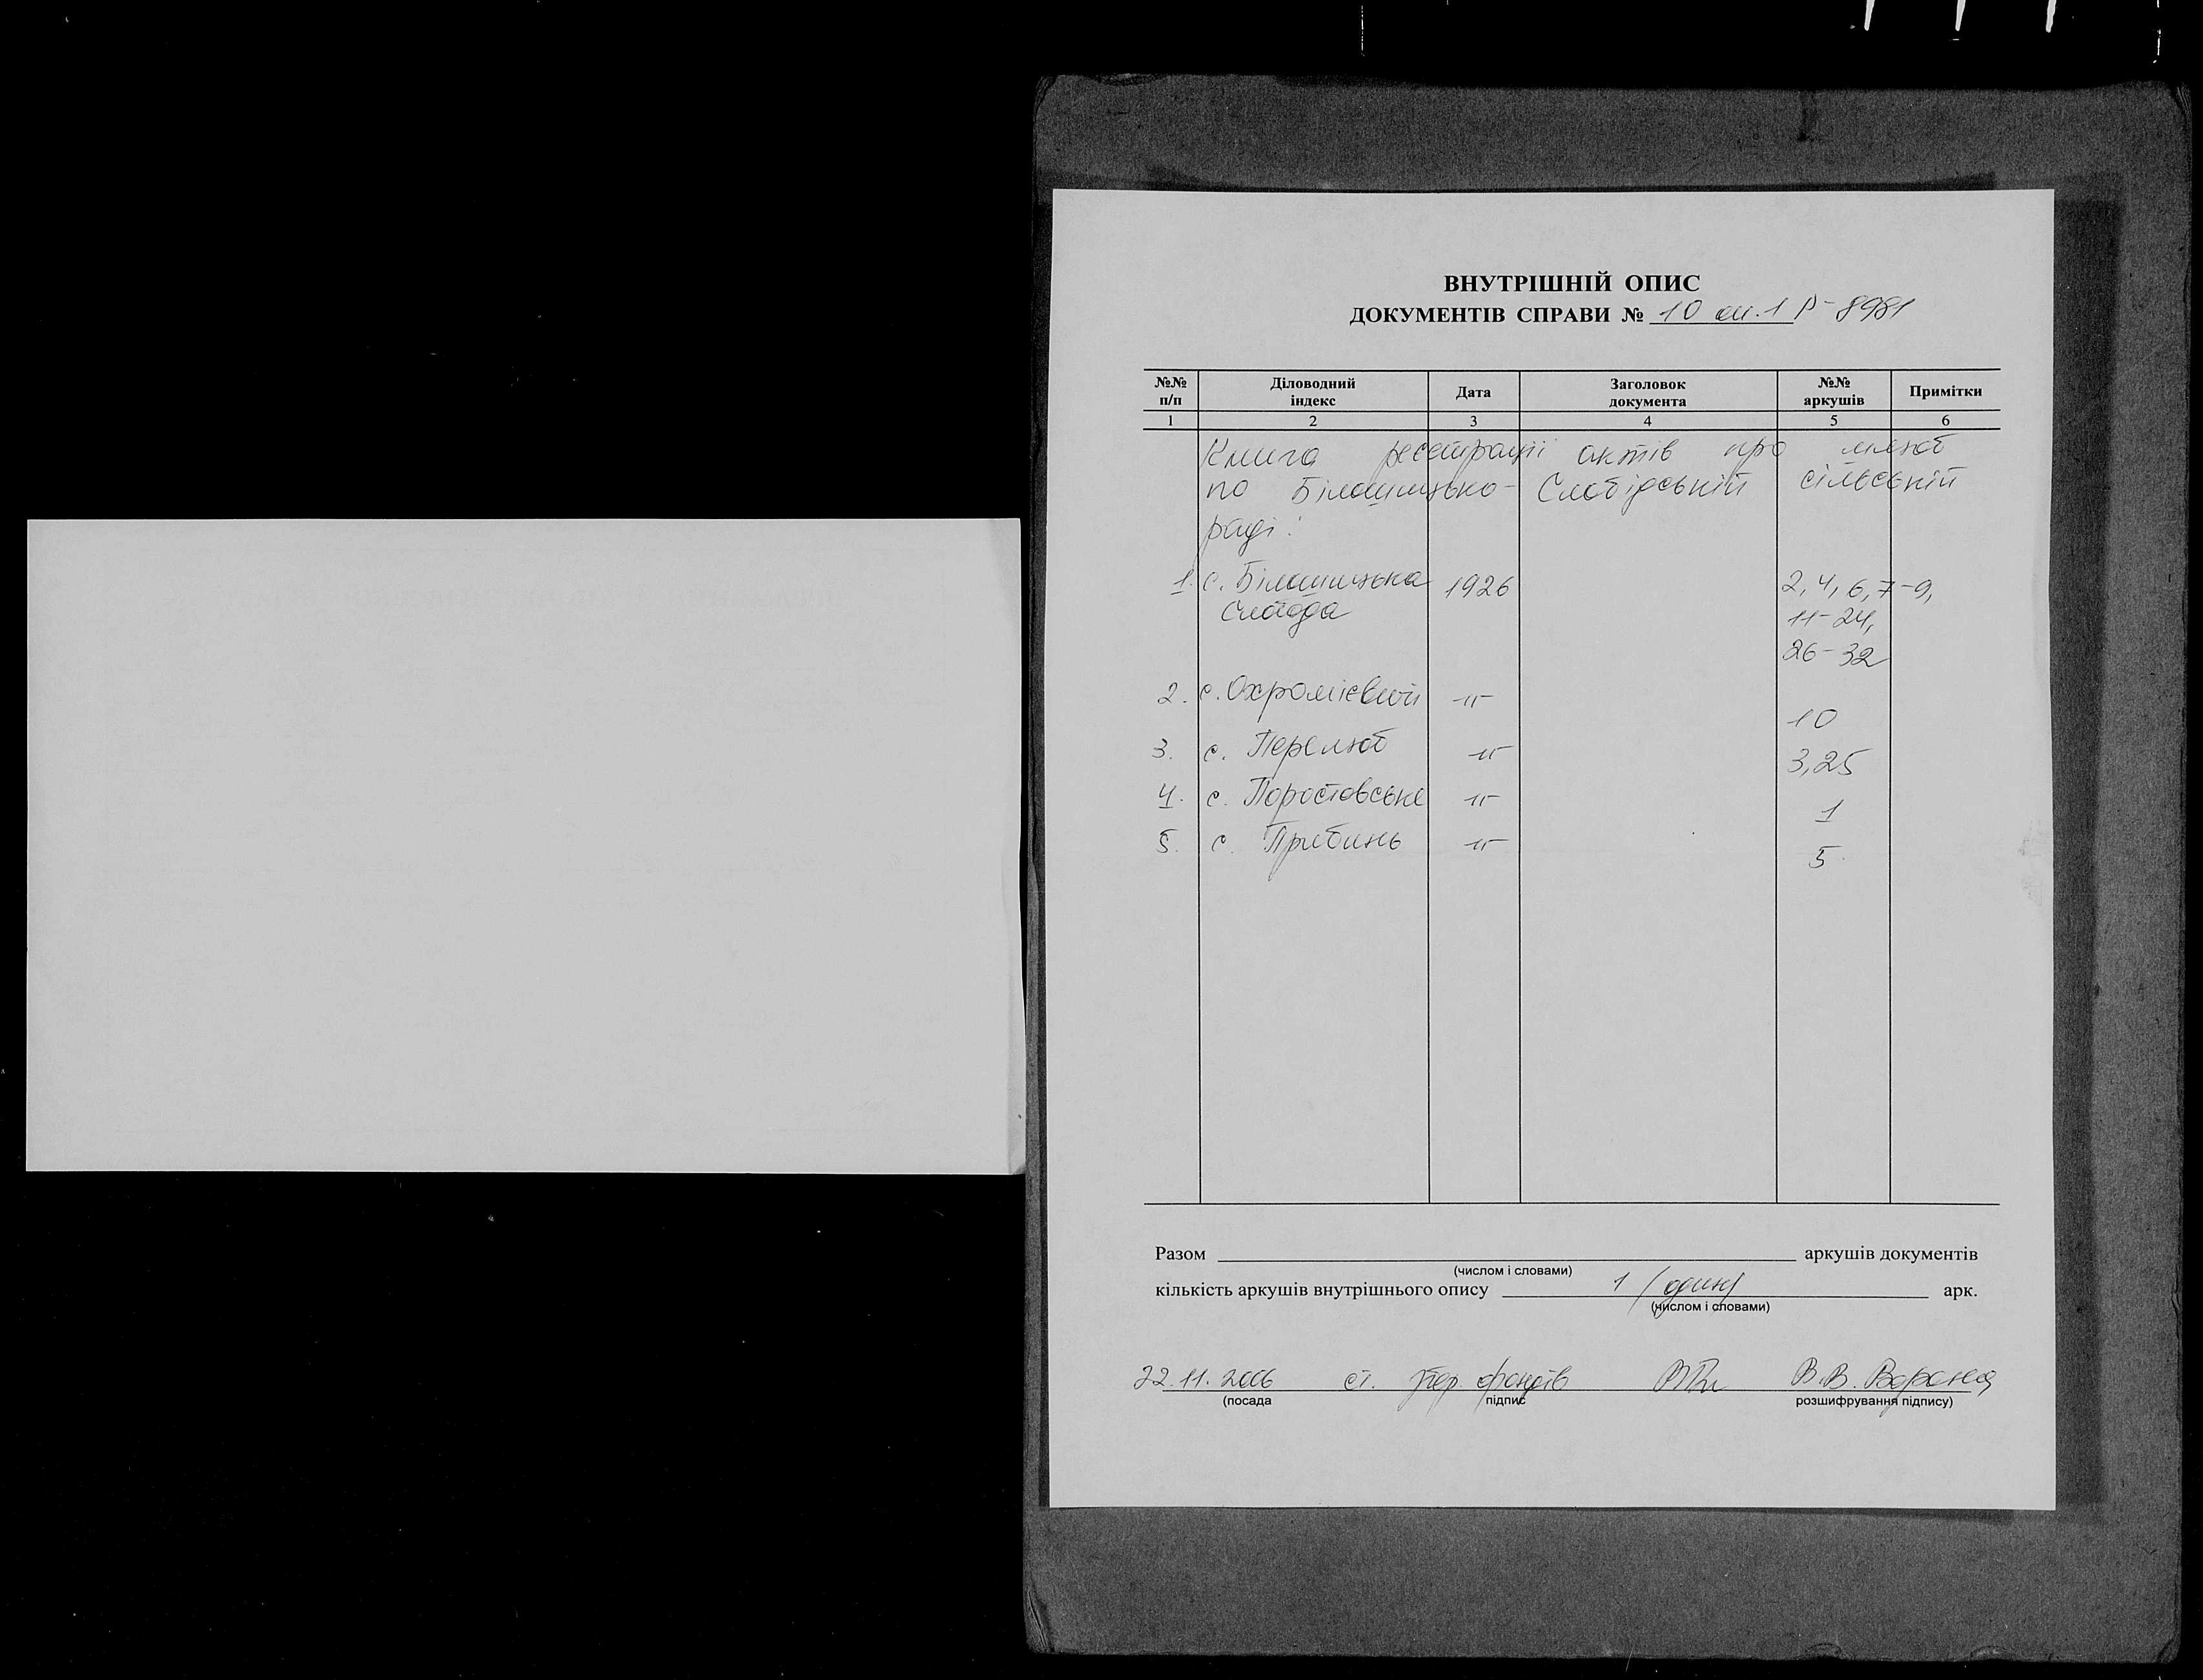 ВНУТРІШНІЙ ОПИС
ДОКУМЕНТІВ СПРАВИ № 10 оп.1 Р-8981
№№ п/п Діловодний індекс Дата Заголовок документа №№ аркушів Примітки
1 2 3 4 5 6
Книга реєстрації актів про шлюб
по Білошицько-Слобідській сільській
раді:
1. с. Білошицька 1926 2, 4, 6, 7-9,
Слобода 11-24,
26-32
2. с. Охромієвичі -"- 10
3. с. Перелюб -"- 3,25
4. с. Поростовське -"- 1
5. с. Прибинь -"- 5
Разом аркушів документів
(числом і словами)
кількість аркушів внутрішнього опису 1 /один/ арк.
(числом і словами)
22.11.2006 ст. збер. фондів В.В. Ворона
(посада підпис розшифрування підпису)